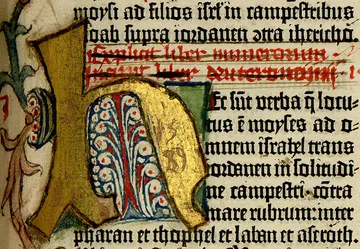 moysi ad filios isrl' in campestribus
moab supra iordanen cōtra iherichō.
Explicit liber numerorum.
Incipit liber deuteronomii. I.
Hec sūt verba q̄ locu-
tus ē moyses ad o-
mnem israhel trans
iordanen in solitudi-
ne campestri: cōtra
mare rubrum: inter
pharan et thophel et laban et aseroth,